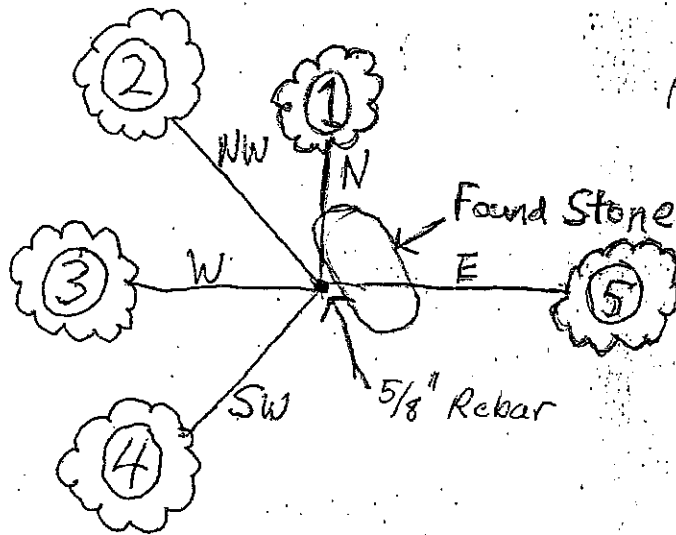 2
1
NW
N
Found Stone
3
W
E
5
5/8" Rebar
SW
4